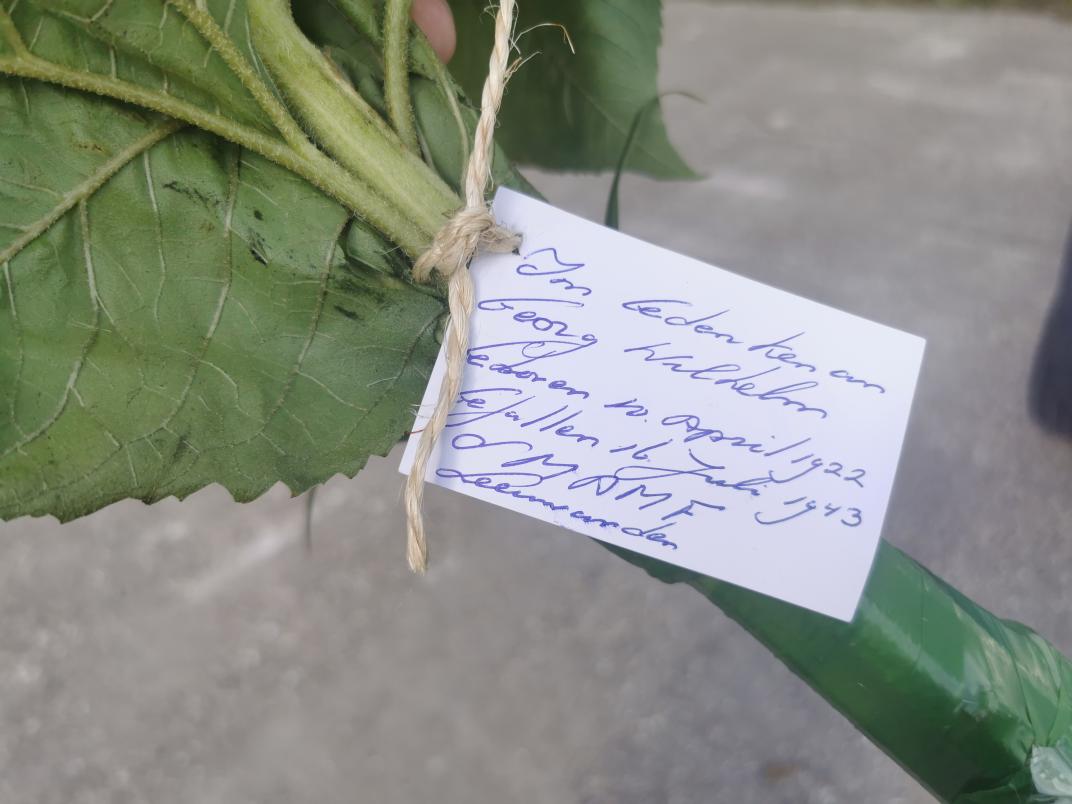 Im Gedenken an
Georg Wilhelm
Geboren 10. April 1922
Gefallen 16. Juli 1943
SMAMF
Leeuwarden